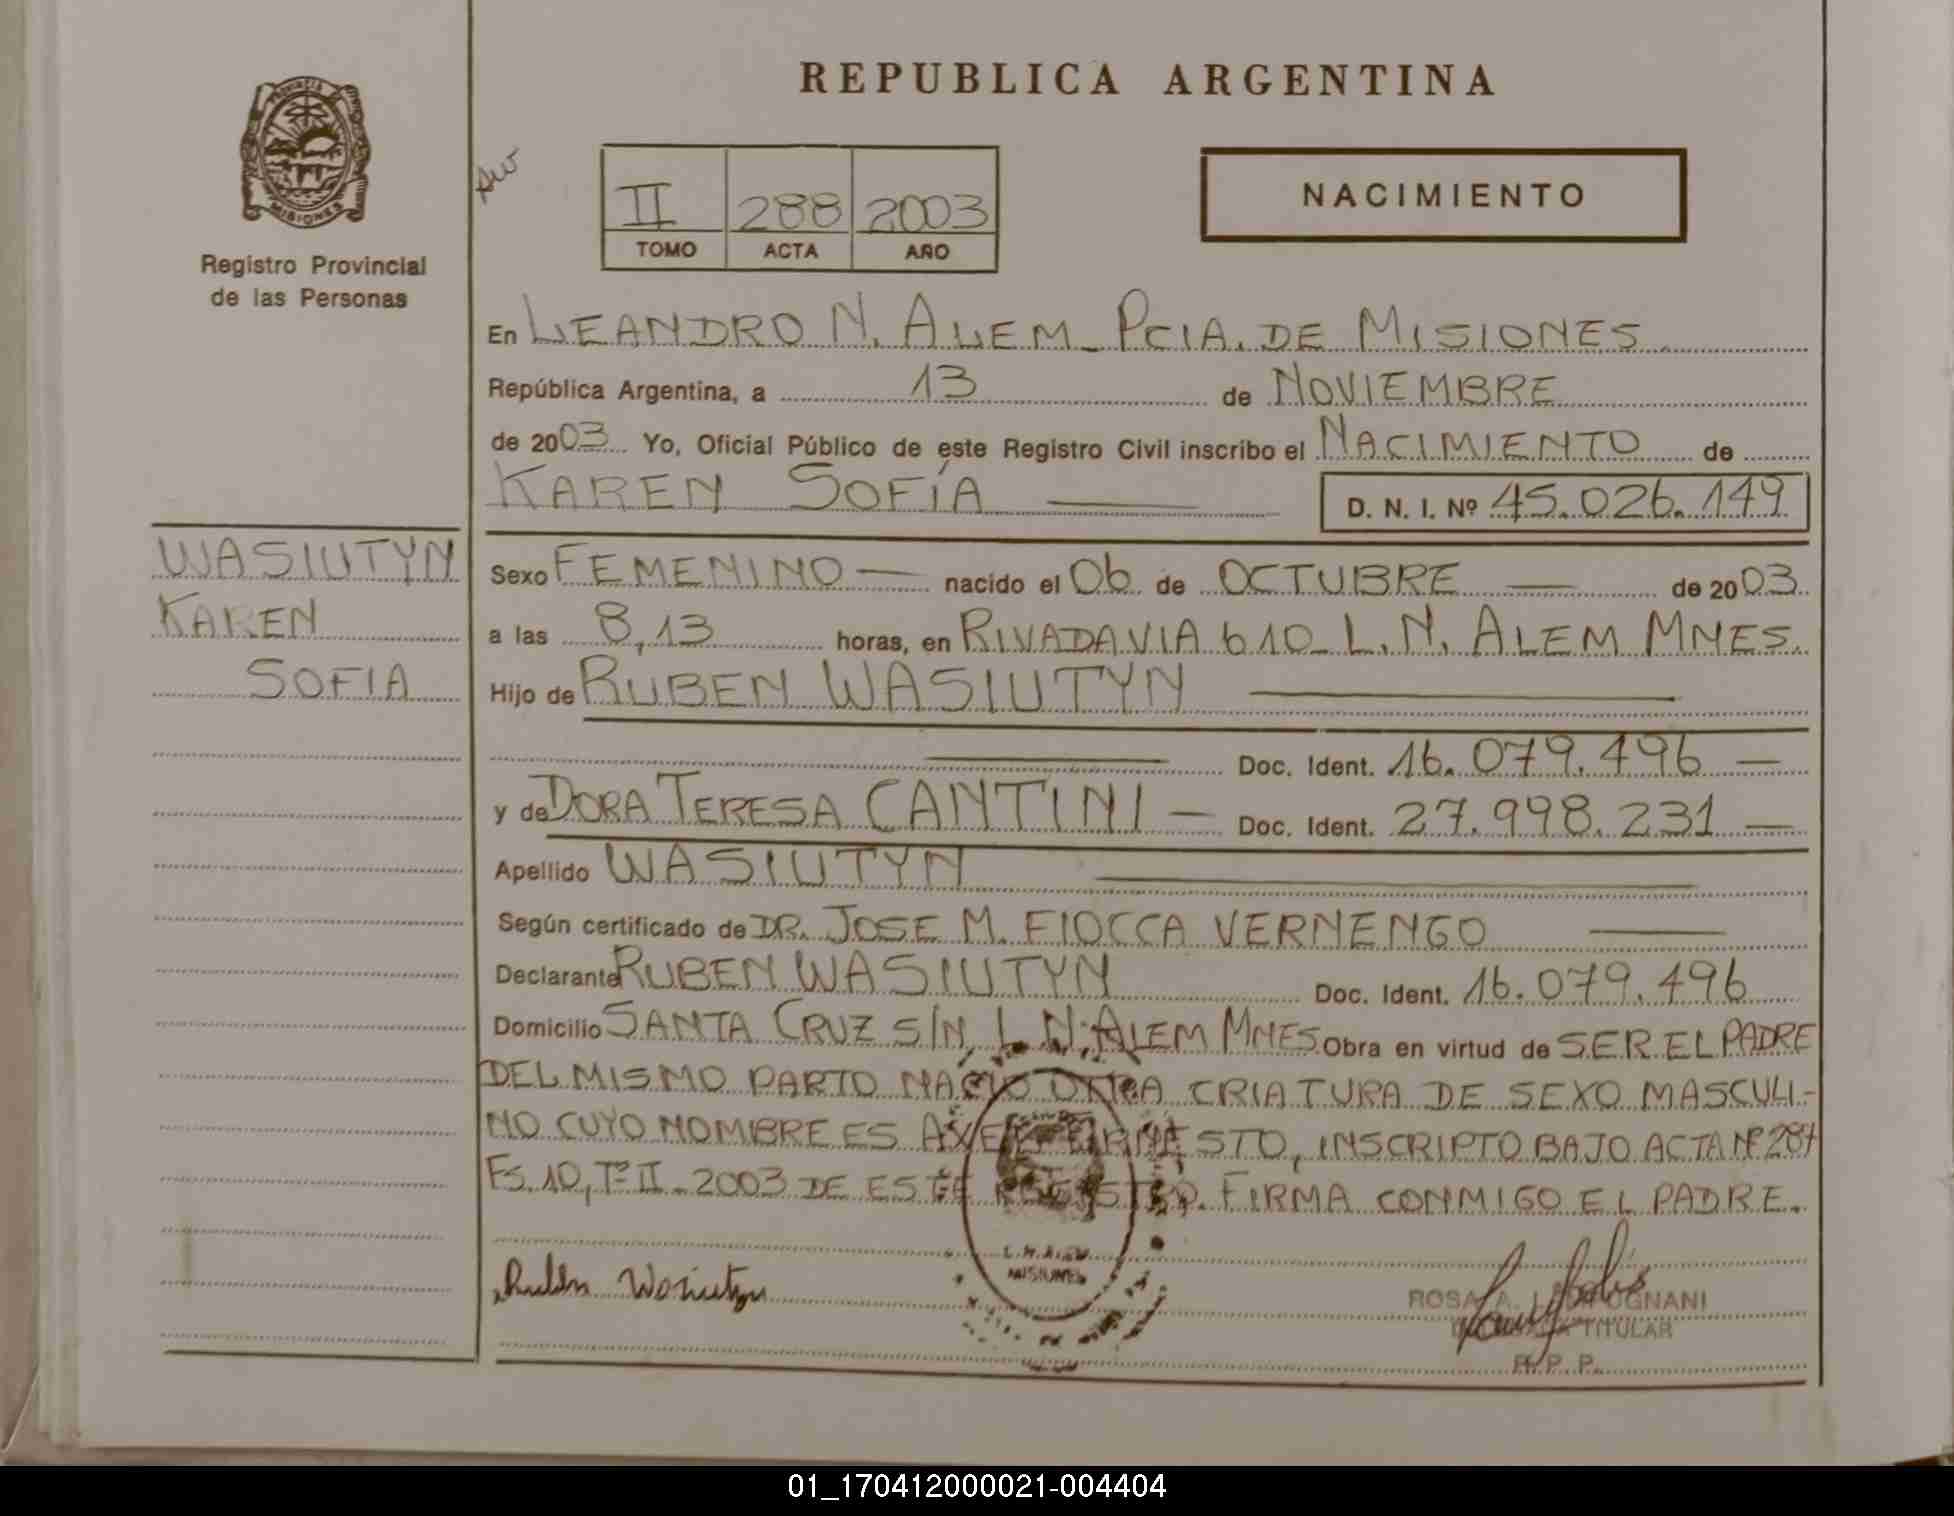 REPUBLICA ARGENTINA
PROVINCIA
MISIONES
Registro Provincial
de las Personas
II 288 2003
TOMO ACTA AÑO
NACIMIENTO
En LEANDRO N. ALEM - PCIA. DE MISIONES
República Argentina, a 13 de NOVIEMBRE
de 2003 Yo, Oficial Público de este Registro Civil inscribo el NACIMIENTO de
KAREN SOFÍA D. N. I. Nº 45.026.149
WASIUTYN
KAREN
SOFIA
Sexo FEMENINO — nacido el 06 de OCTUBRE — de 2003
a las 8,13 horas, en RIVADAVIA 610 - L. N. ALEM MNES.
Hijo de RUBEN WASIUTYN —
— Doc. Ident. 16.079.496 —
y de DORA TERESA CANTINI — Doc. Ident. 27.998.231 —
Apellido WASIUTYN —
Según certificado de DR. JOSE M. FIOCCA VERNENGO —
Declarante RUBEN WASIUTYN Doc. Ident. 16.079.496
Domicilio SANTA CRUZ S/N L. N. ALEM MNES. Obra en virtud de SER EL PADRE
DEL MISMO PARTO NACIO OTRA CRIATURA DE SEXO MASCULI-
NO CUYO NOMBRE ES AXEL ERNESTO, INSCRIPTO BAJO ACTA Nº 287
Fs. 10, Tº II - 2003 DE ESTE REGISTRO. FIRMA CONMIGO EL PADRE.
L. N. ALEM
MISIONES
Rubén Wasiutyn
ROSA A.
TITULAR
R. P. P.
01_170412000021-004404